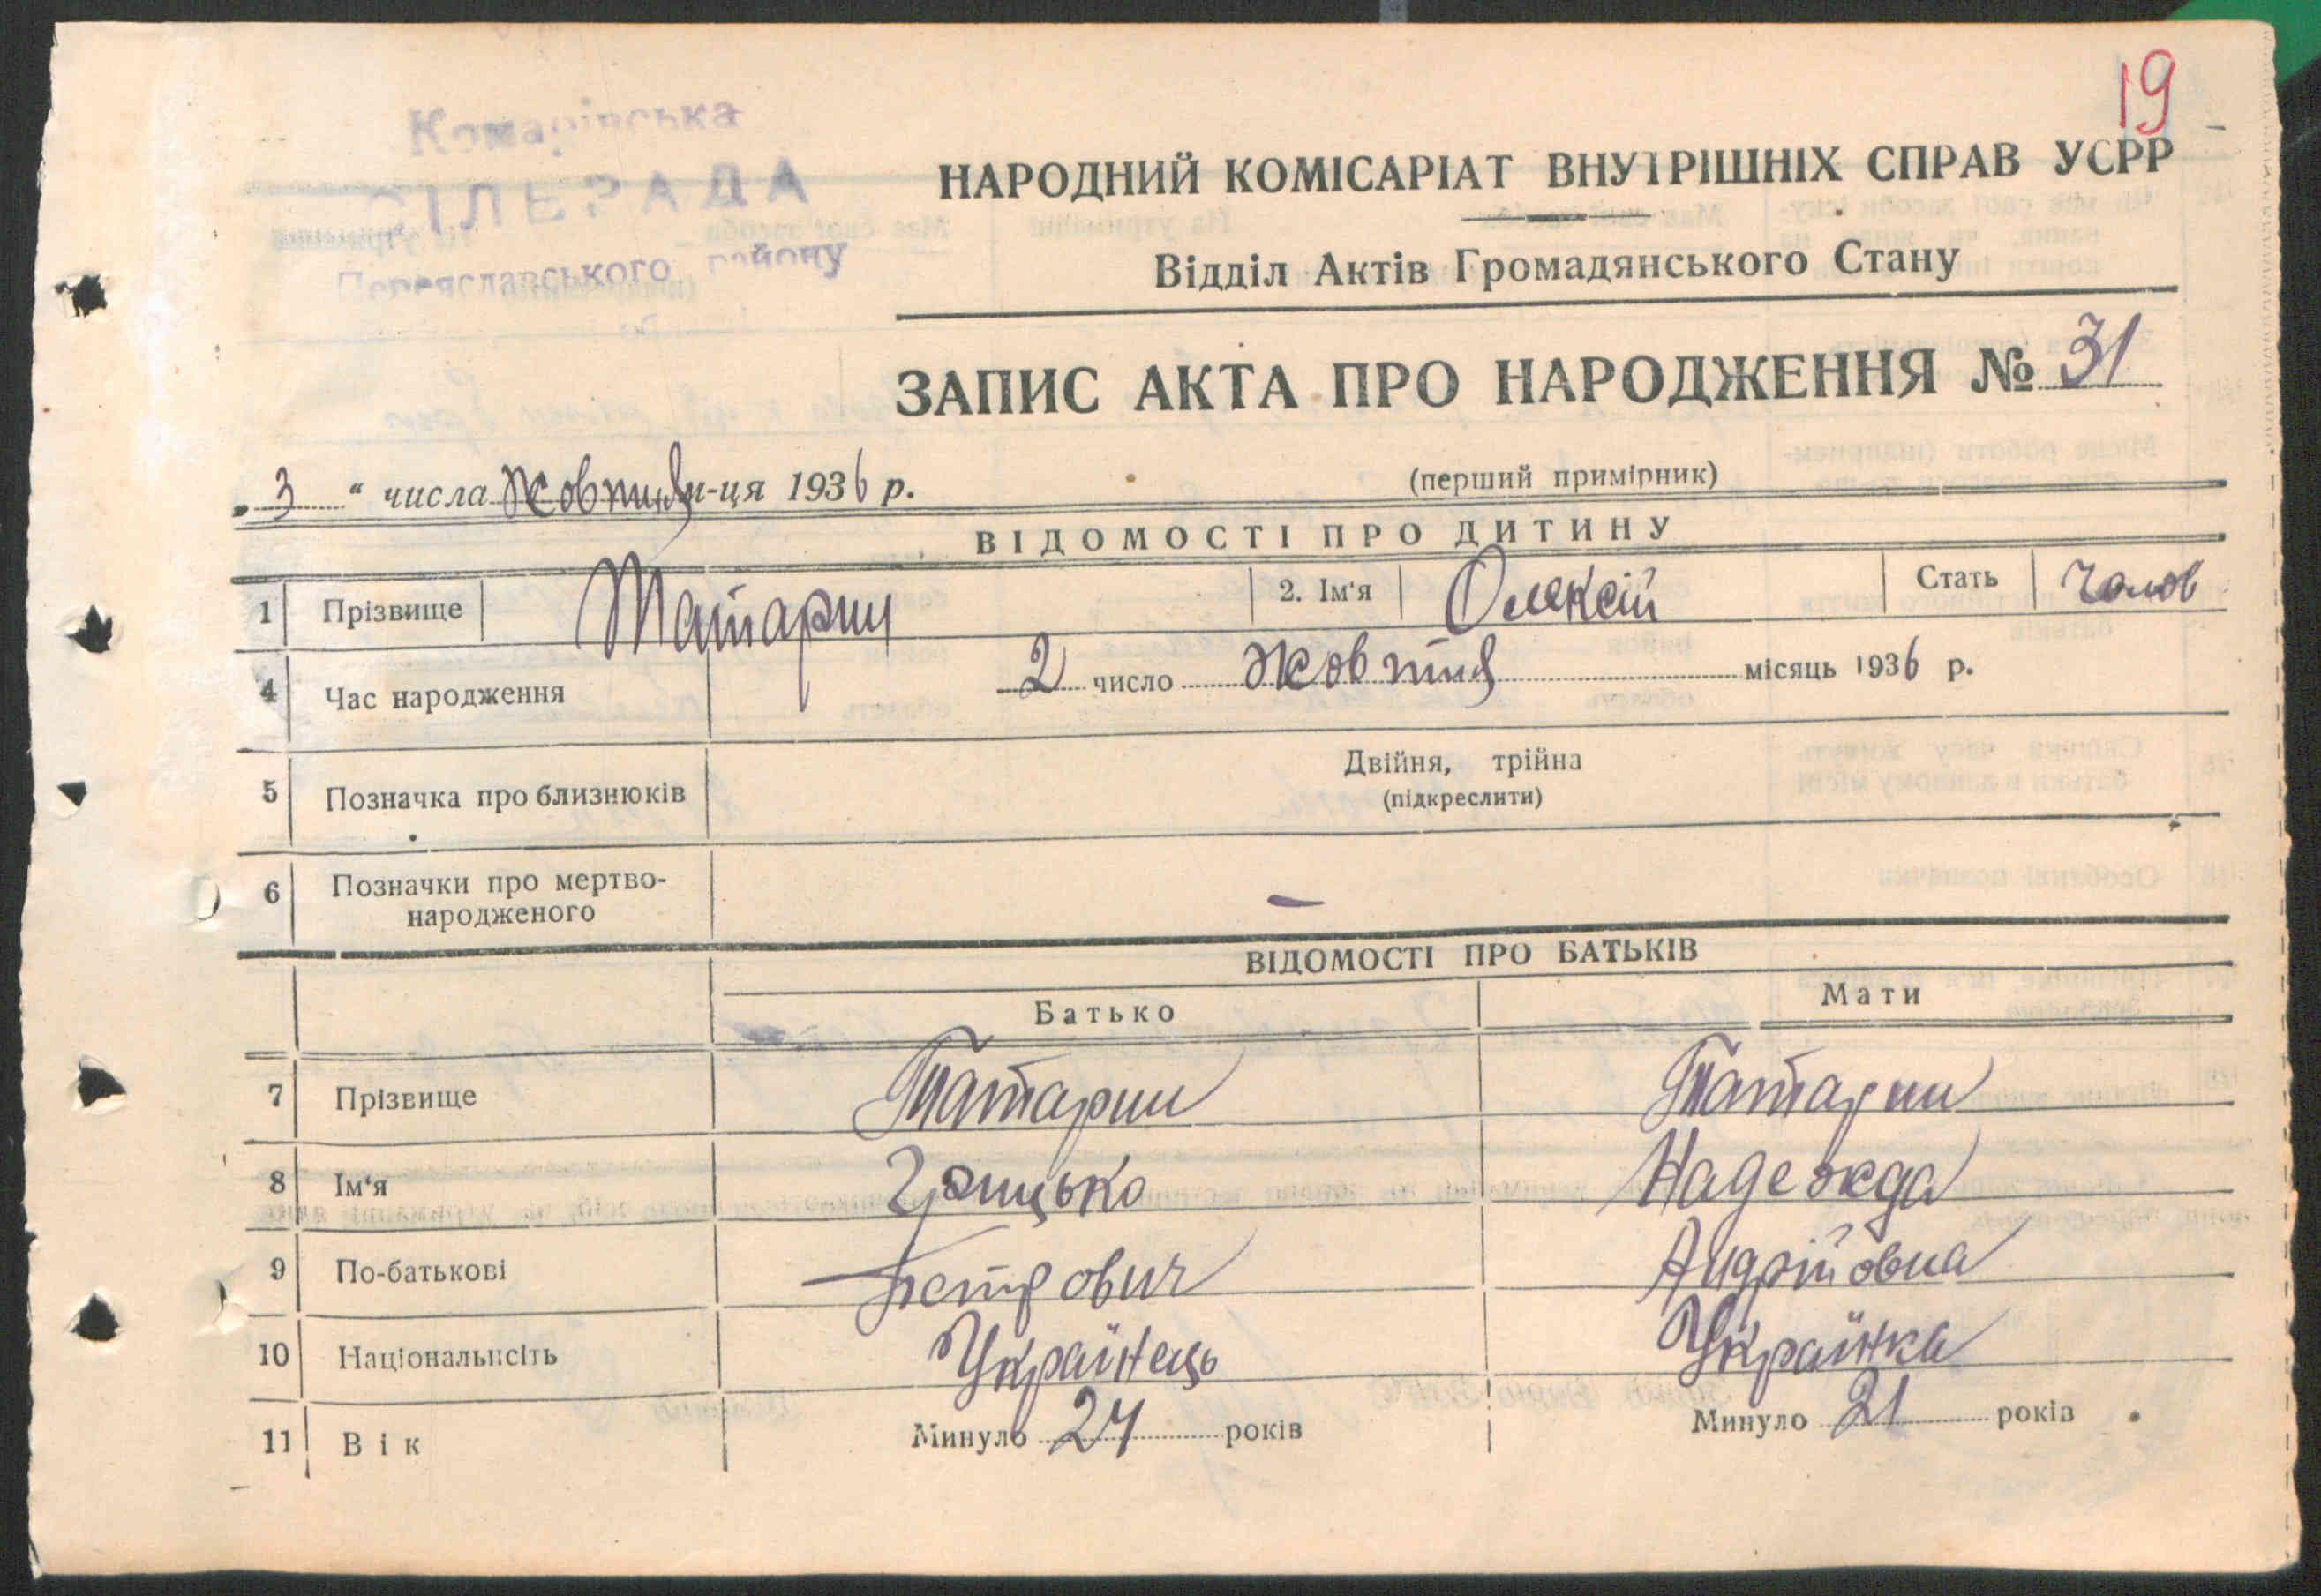 19
Комарівська
СІЛЬРАДА
Переяславського району
НАРОДНИЙ КОМІСАРІАТ ВНУТРІШНІХ СПРАВ УСРР
Відділ Актів Громадянського Стану
ЗАПИС АКТА ПРО НАРОДЖЕННЯ № 31
„3“ числа Жовтня м-ця 1936 р.
(перший примірник)
ВІДОМОСТІ ПРО ДИТИНУ
1 Прізвище Татарин 2. Ім'я Олексій Стать Чолов
4 Час народження 2 число Жовтня місяць 1936 р.
5 Позначка про близнюків Двійня, трійна
(підкреслити)
6 Позначки про мертво-
народженого —
ВІДОМОСТІ ПРО БАТЬКІВ
Батько Мати
7 Прізвище Татарин Татарин
8 Ім'я Грицько Надежда
9 По-батькові Петрович Андрійовна
10 Національнсіть Українець Українка
11 Вік Минуло 24 років Минуло 21 років